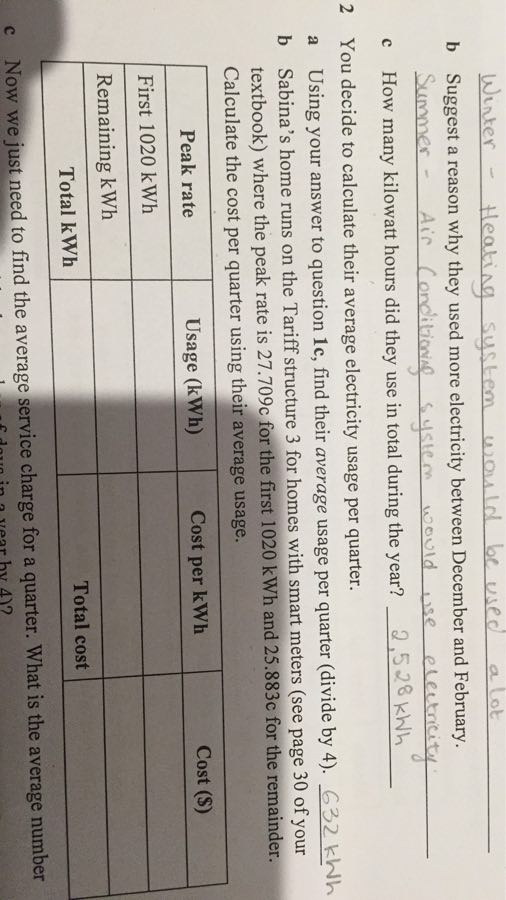 Winter - Heating system would be used a lot
b Suggest a reason why they used more electricity between December and February.
Summer - Air Conditioning system would use electricity.
c How many kilowatt hours did they use in total during the year? 2,528 kWh
2 You decide to calculate their average electricity usage per quarter.
a Using your answer to question 1c, find their average usage per quarter (divide by 4). 632 kWh
b Sabina's home runs on the Tariff structure 3 for homes with smart meters (see page 30 of your
textbook) where the peak rate is 27.709c for the first 1020 kWh and 25.883c for the remainder.
Calculate the cost per quarter using their average usage.
Peak rate Usage (kWh) Cost per kWh Cost ($)
First 1020 kWh
Remaining kWh
Total kWh Total cost
c Now we just need to find the average service charge for a quarter. What is the average number
of days in a year by 4)?